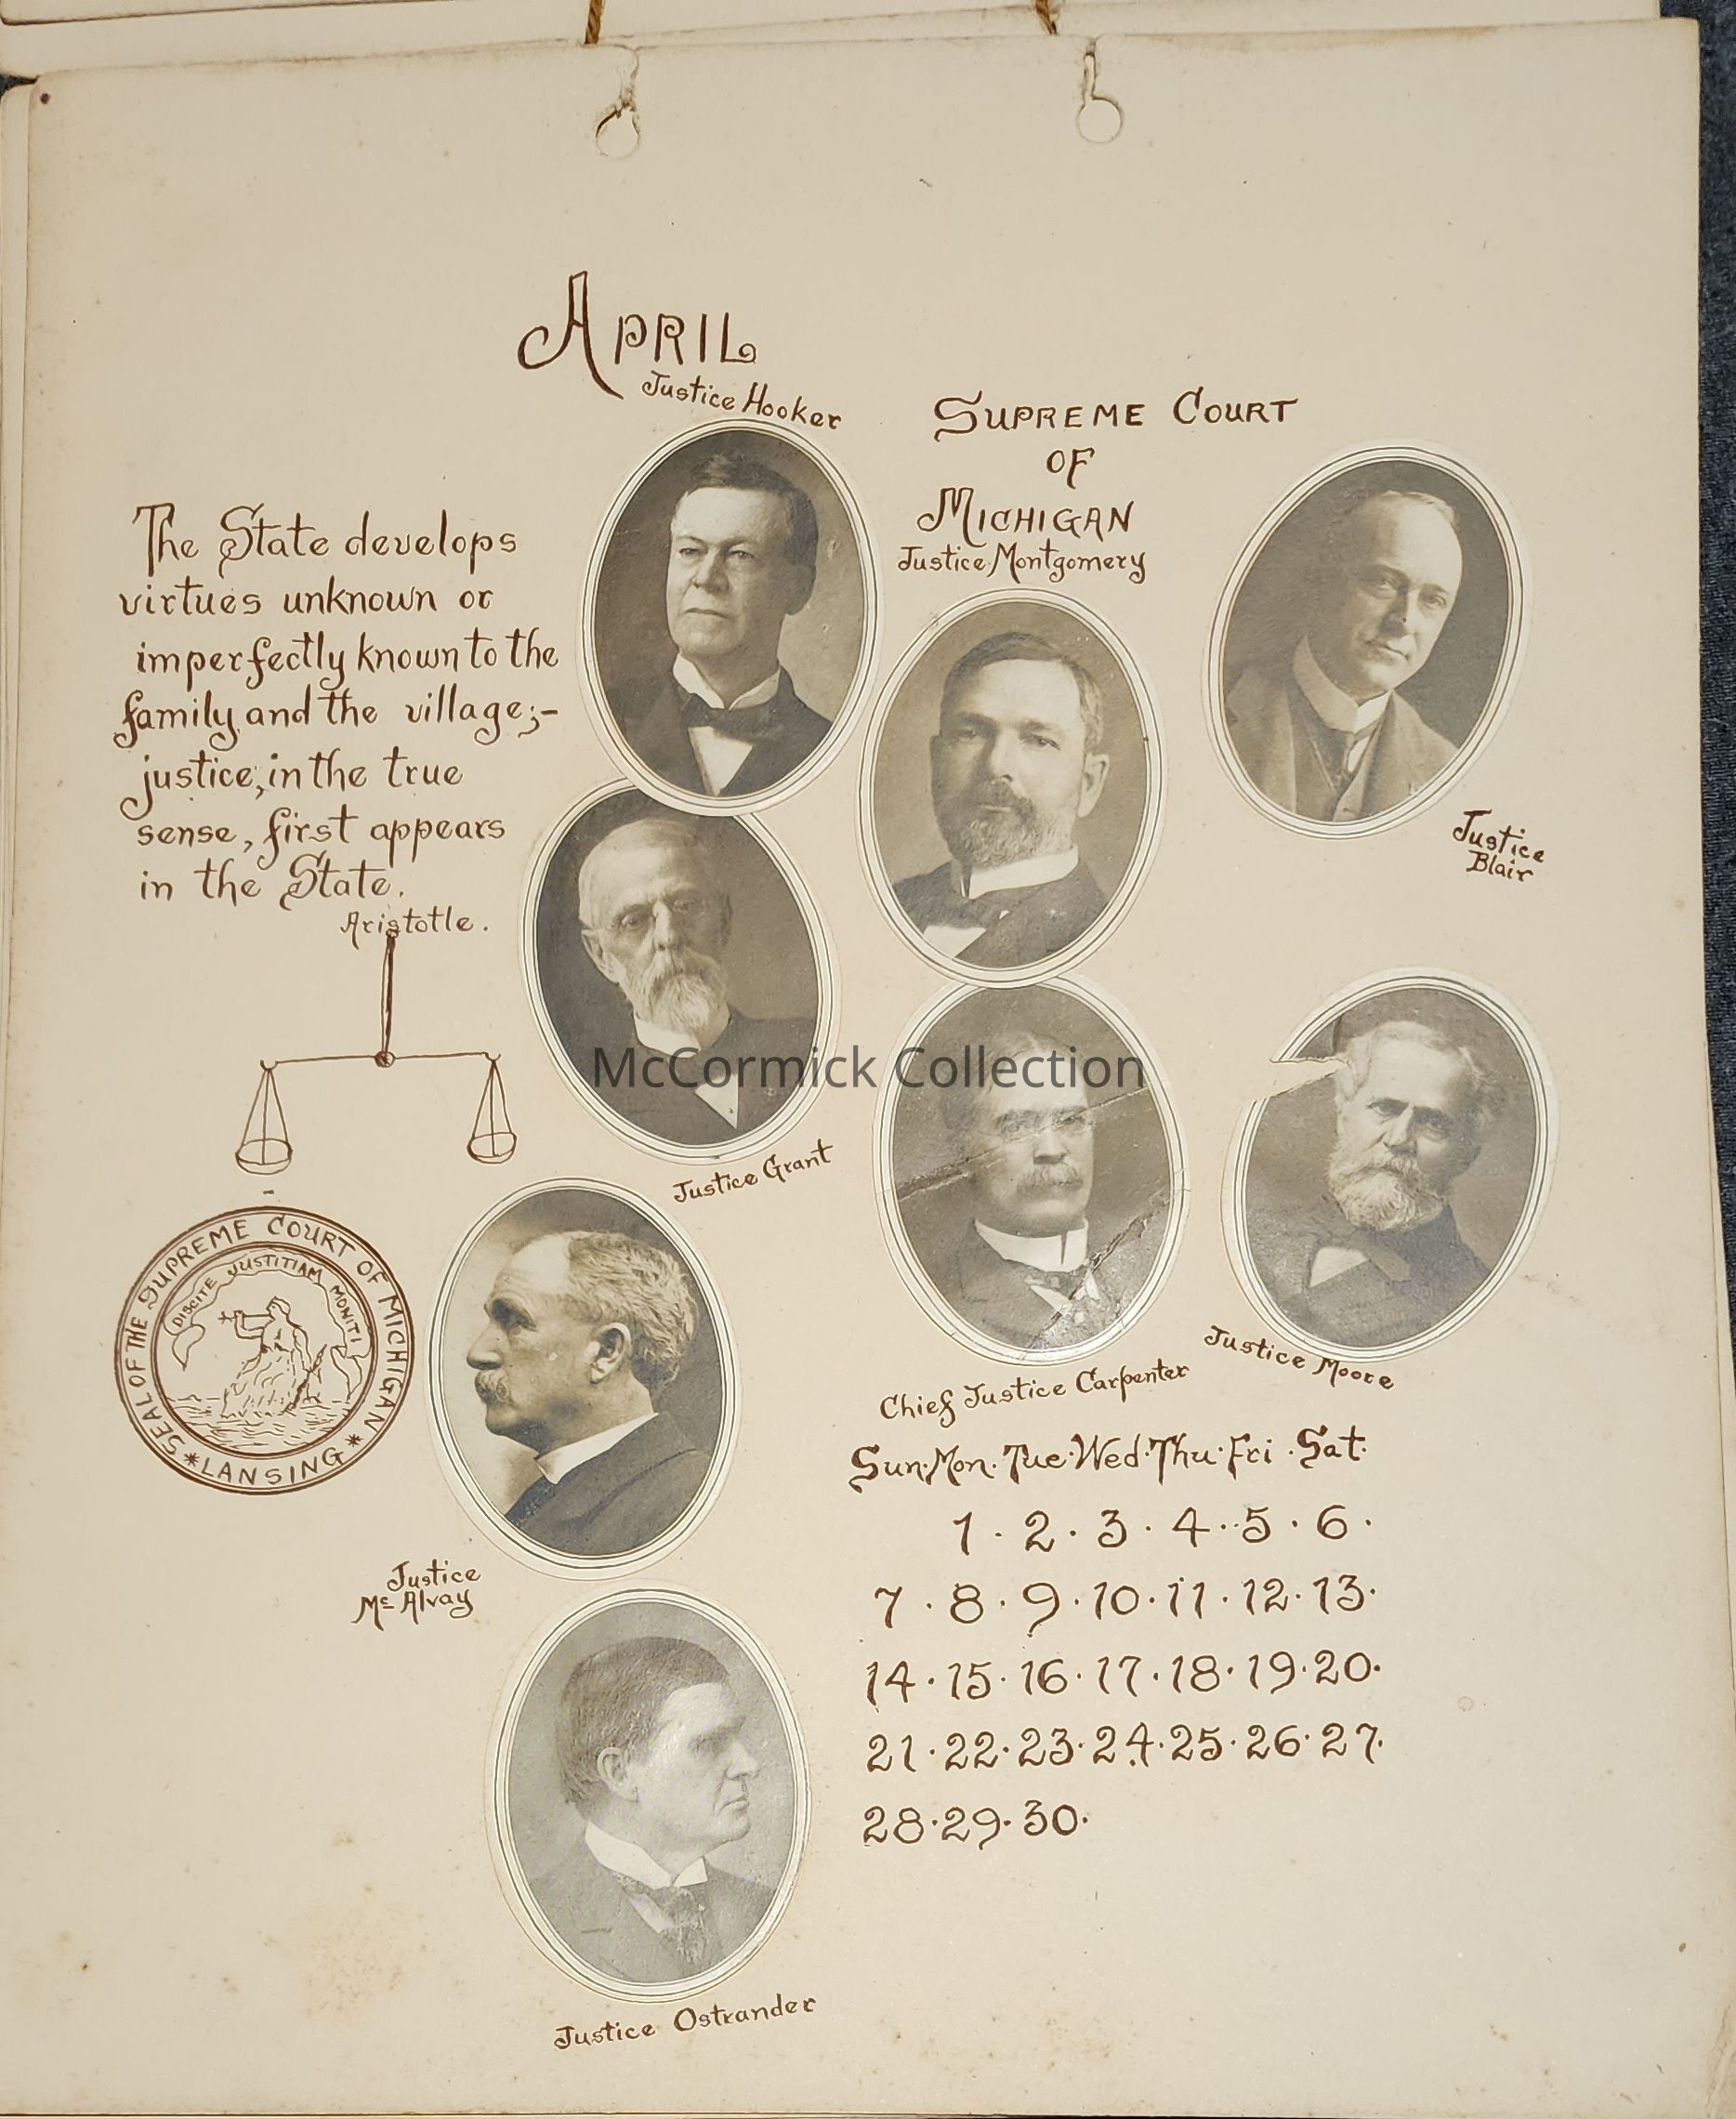 APRIL
Justice Hooker
SUPREME COURT
OF
MICHIGAN
Justice Montgomery
The State develops
virtues unknown or
imperfectly known to the
family and the village;-
justice, in the true
sense, first appears
in the State.
Aristotle.
Justice
Blair
McCormick Collection
Justice Grant
SEAL OF THE SUPREME COURT OF MICHIGAN
* LANSING *
DISCITE JUSTITIAM MONITI
Justice Moore
Chief Justice Carpenter
Justice
Mc Alvay
Sun. Mon. Tue. Wed. Thu. Fri. Sat.
1 . 2 . 3 . 4 . . 5 . 6 .
7 . 8 . 9 . 10 . 11 . 12 . 13 .
14 . 15 . 16 . 17 . 18 . 19 . 20 .
21 . 22 . 23 . 24 . 25 . 26 . 27 .
28 . 29 . 30 .
Justice Ostrander